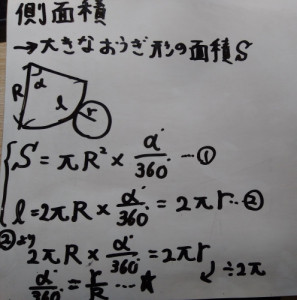 側面積
→大きなおうぎ形の面積S
R α l r
S = πR² × α°/360° …①
l = 2πR × α°/360° = 2πr …②
②より
2πR × α°/360° = 2πr
÷2π
α°/360° = r/R …★